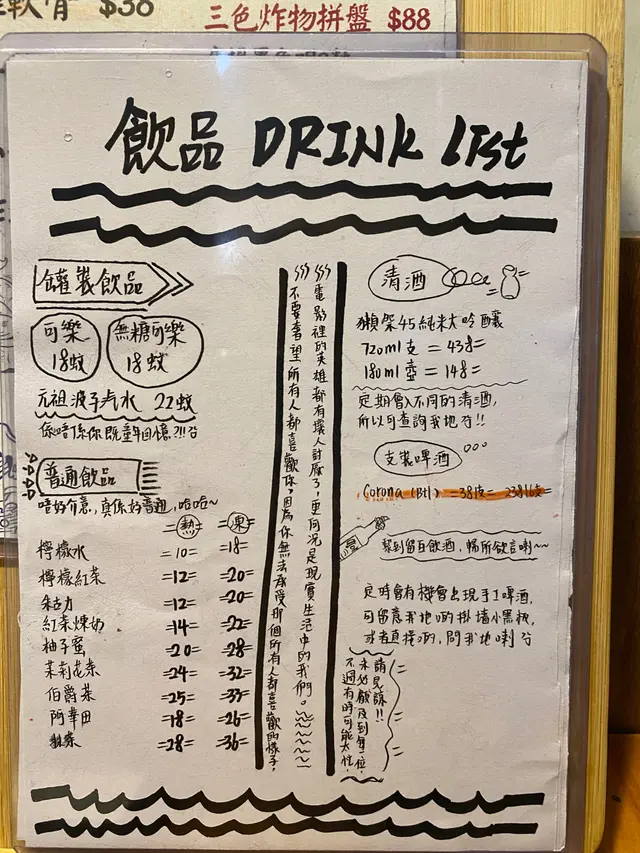 軟骨 $38
三色炸物拼盤 $88
飲品 DRINK LIST
罐裝飲品
可樂
18蚊
無糖可樂
18蚊
元祖波子汽水 22蚊
係唔係你既童年回憶?!!
普通飲品
唔好介意，真係好普通，哈哈~
熱 =凍
檸檬水 =10= =18=
檸檬紅茶 =12= =20=
朱古力 =12= =20=
紅茶煉奶 =14= =22
柚子蜜 =20= =28
茉莉花茶 =24= =32=
伯爵茶 =25= =33=
阿華田 =18= =26=
=28= =36=
電影裡的英雄都有壞人討厭了，更何況是現實生活中的我們。
不要奢望所有人都喜歡你，因為你無法承受那個所有人都喜歡的樣子，
清酒
獺祭45純米大吟釀
720ml支 = 438=
180ml壺 = 148=
定期會入不同的清酒，
所以可查詢我地!!
支裝啤酒
Corona (Btl) =38支= 238/6支=
黎到留白飲酒，暢所欲言喇~~
定時會有機會出現手工啤酒，
可留意我地啲掛墻小黑板，
或者直接啲，問我地喇
請見諒!!
未必顧及到每一位，
不過有時可能太忙，